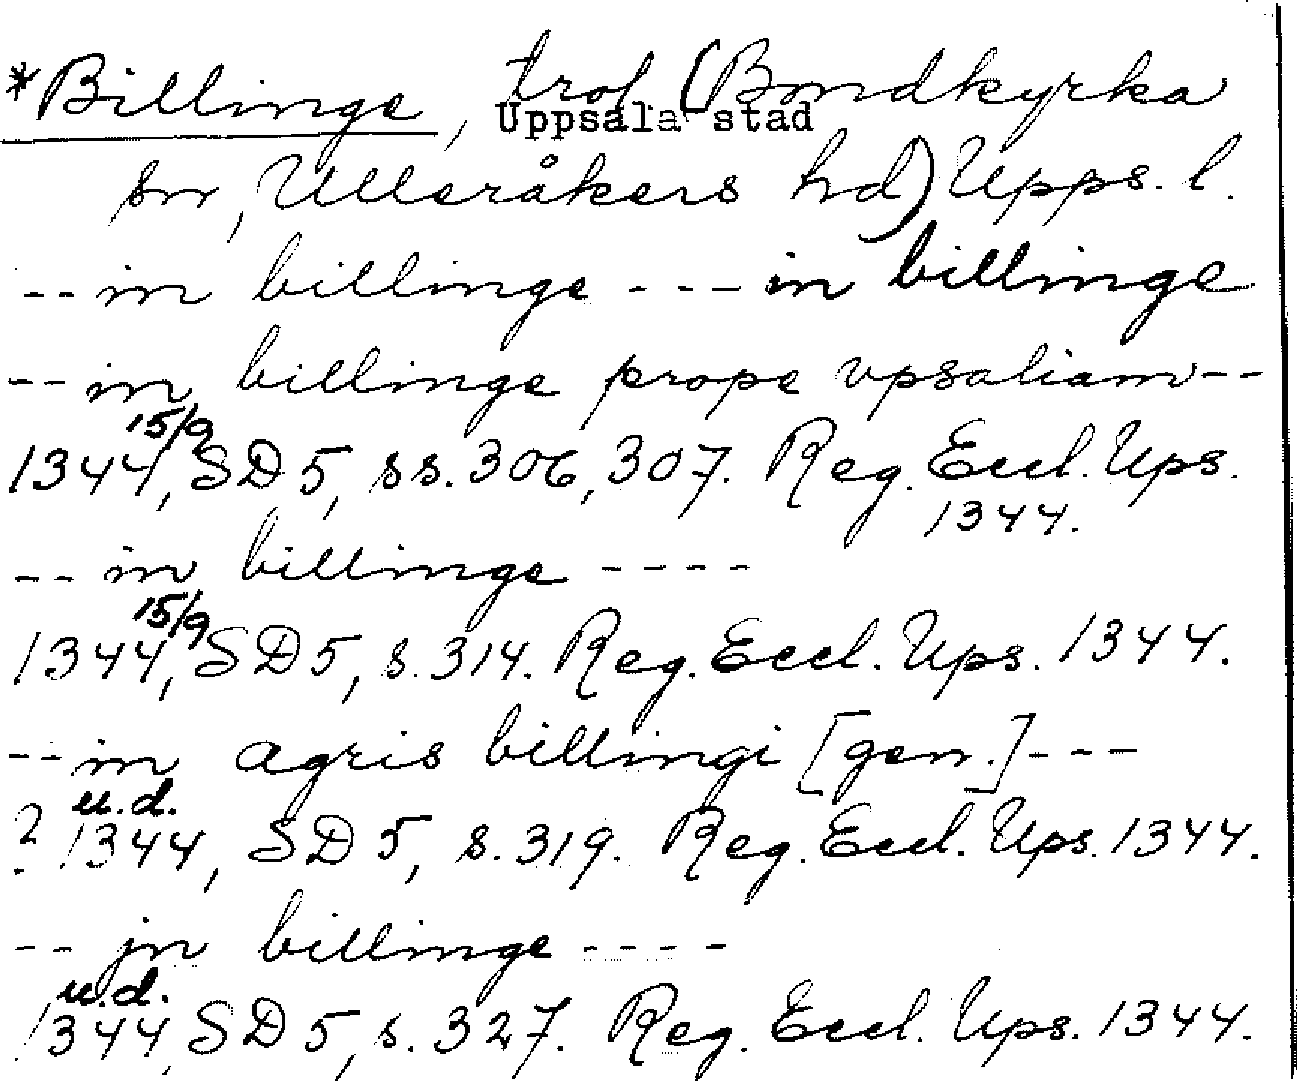 *Billinge, trol (Bondkyrka
Uppsala stad
sn, Ulleråkers hd) Upps. l.
-- in billinge --- in billinge
-- in billinge prope vpsaliam --
15/9
1344, SD 5, ss. 306, 307. Reg. Eccl. Ups.
1344.
-- in billinge ----
15/9
1344, SD 5, s. 314. Reg. Eccl. Ups. 1344.
-- in agris billingi [gen.] ---
u.d.
? 1344, SD 5, s. 319. Reg. Eccl. Ups. 1344.
-- jn billinge ----
u.d.
1344, SD 5, s. 327. Reg. Eccl. Ups. 1344.